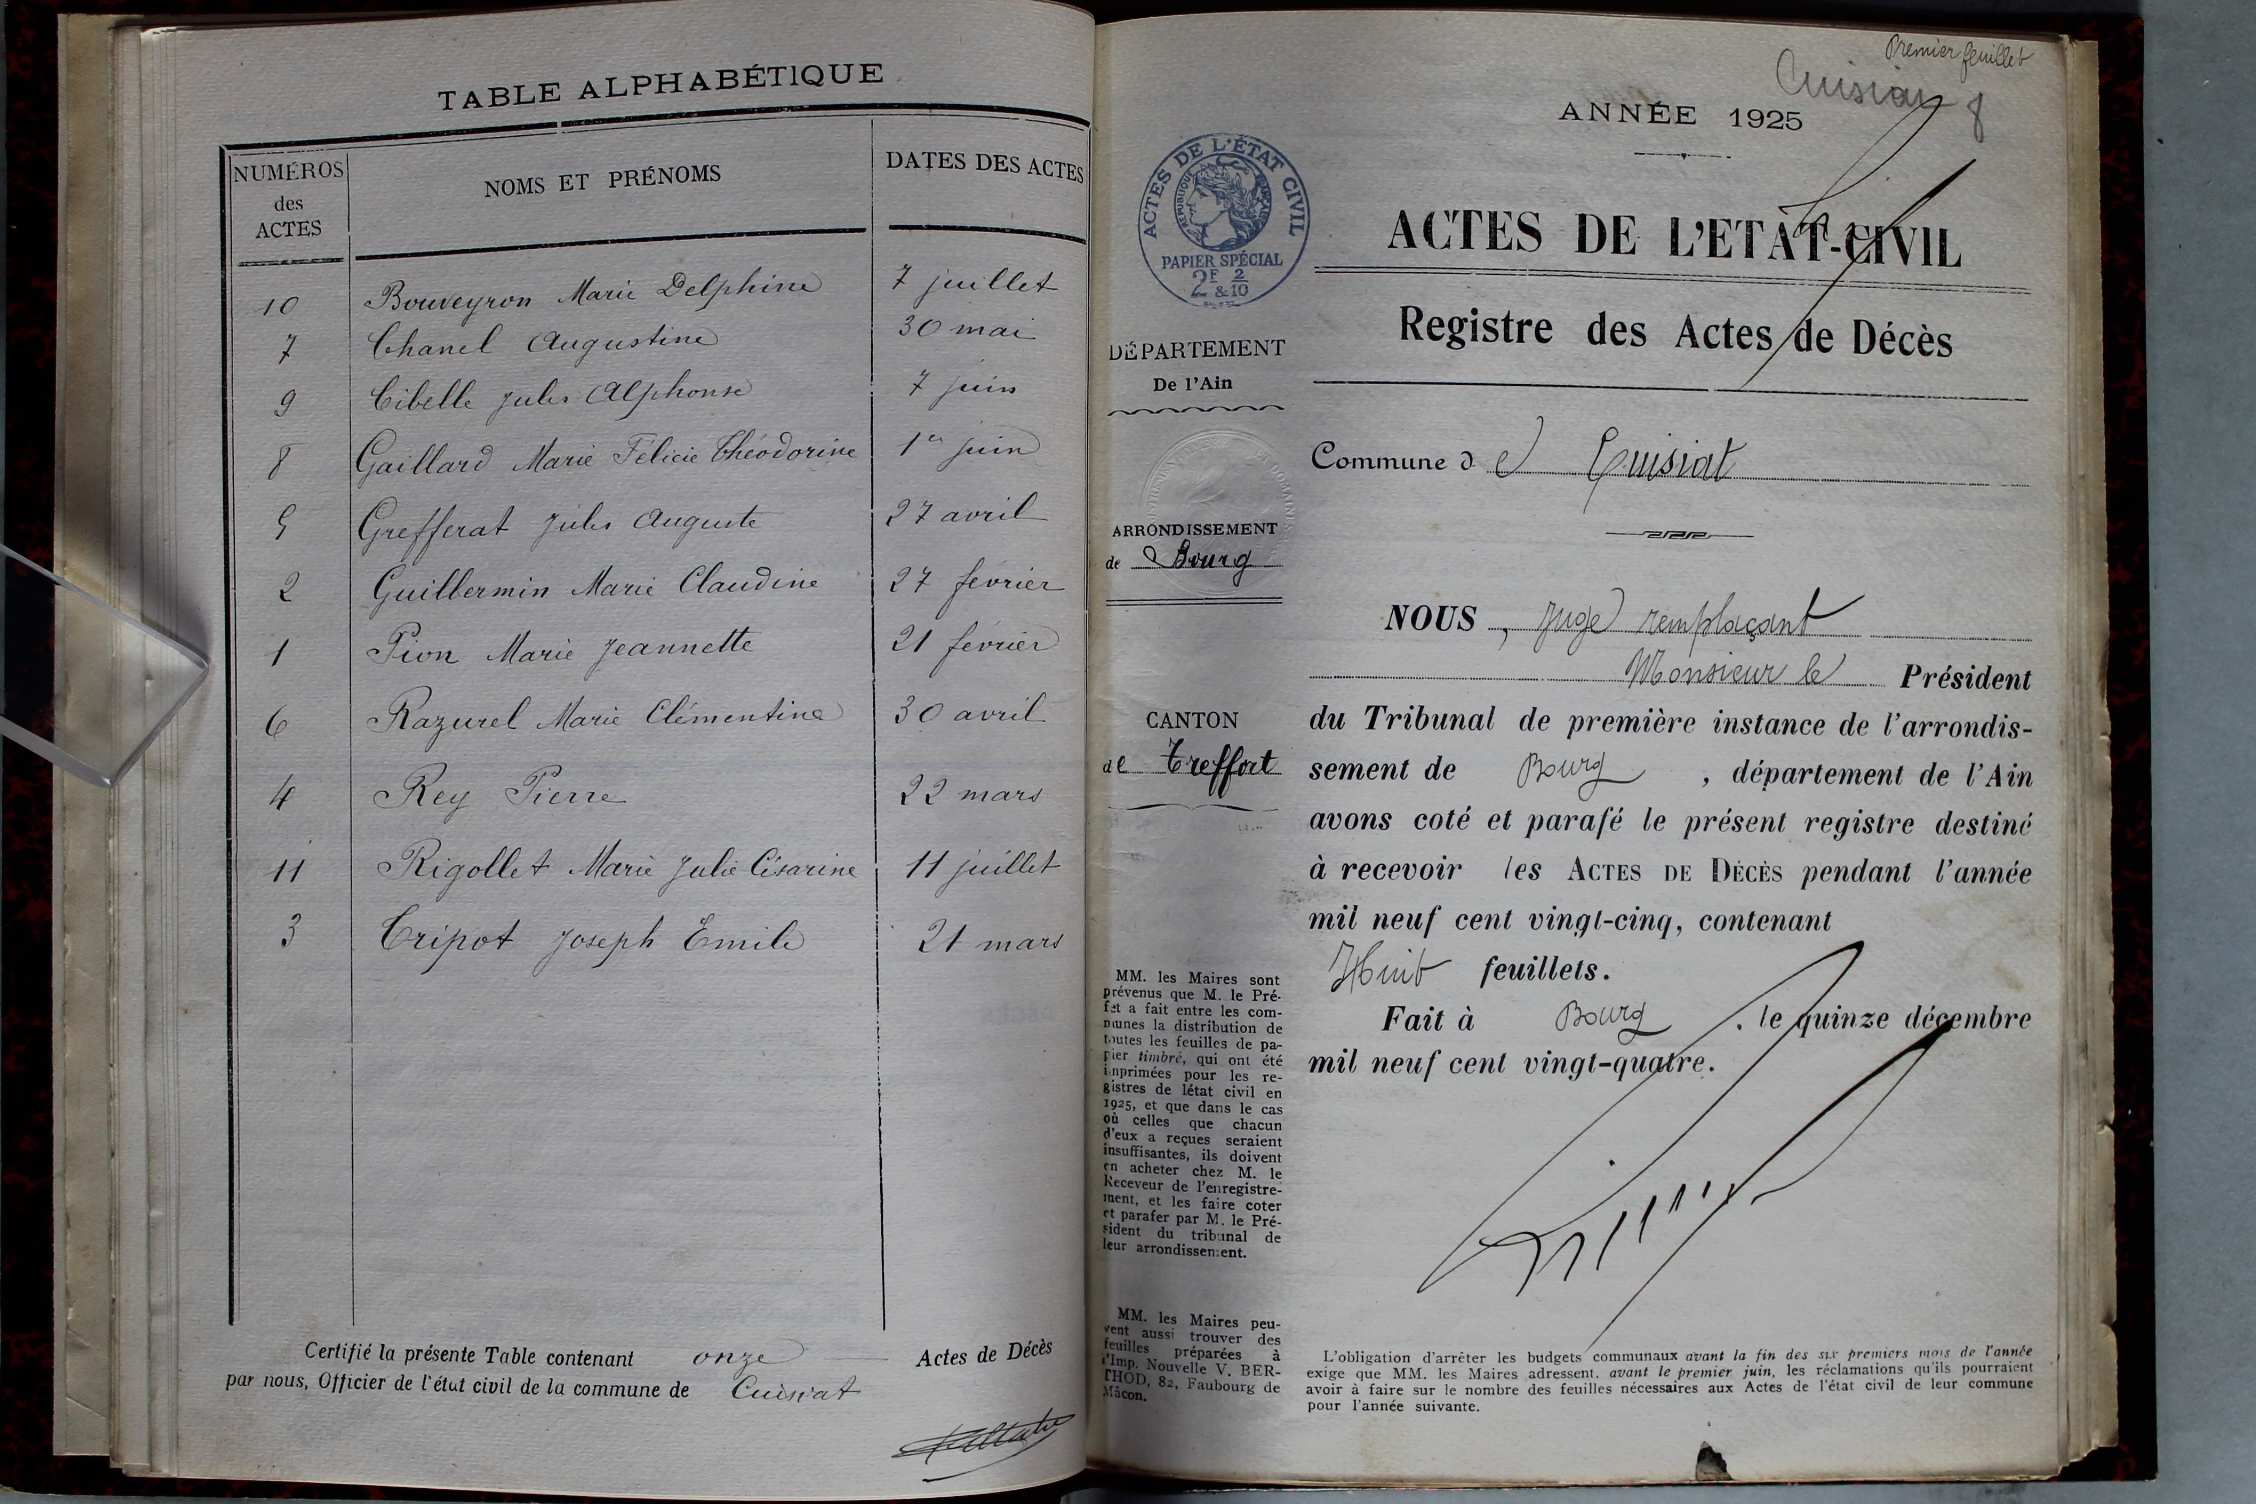 TABLE ALPHABÉTIQUE
NUMÉROS des ACTES NOMS ET PRÉNOMS DATES DES ACTES
10 Bouveyron Marie Delphine 7 juillet
7 Chanel Augustine 30 mai
9 Cibelle Jules Alphonse 7 juin
8 Gaillard Marie Félicie Théodorine 1er juin
5 Grefferat Jules Auguste 27 avril
2 Guillermin Marie Claudine 27 février
1 Pion Marie Jeannette 21 février
6 Razurel Marie Clémentine 30 avril
4 Rey Pierre 22 mars
11 Rigollet Marie Julie Césarine 11 juillet
3 Tripot Joseph Emile 21 mars
Certifié la présente Table contenant onze Actes de Décès
par nous, Officier de l'état civil de la commune de Cuisiat
Premier feuillet
Cuisiat 8
ANNÉE 1925
ACTES DE L'ÉTAT CIVIL
RÉPUBLIQUE FRANÇAISE
PAPIER SPÉCIAL
2F 2
& 10
ACTES DE L'ETAT-CIVIL
Registre des Actes de Décès
DÉPARTEMENT
De l'Ain
Commune de Cuisiat
ARRONDISSEMENT
de Bourg
CANTON
de Treffort
NOUS, Juge remplaçant
Monsieur le Président
du Tribunal de première instance de l'arrondis-
sement de Bourg, département de l'Ain
avons coté et parafé le présent registre destiné
à recevoir les ACTES DE DÉCÈS pendant l'année
mil neuf cent vingt-cinq, contenant
Huit feuillets.
Fait à Bourg, le quinze décembre
mil neuf cent vingt-quatre.
MM. les Maires sont
prévenus que M. le Pré-
fet a fait entre les com-
munes la distribution de
toutes les feuilles de pa-
pier timbré, qui ont été
imprimées pour les re-
gistres de létat civil en
1925, et que dans le cas
où celles que chacun
d'eux a reçues seraient
insuffisantes, ils doivent
en acheter chez M. le
Receveur de l'enregistre-
ment, et les faire coter
et parafer par M. le Pré-
sident du tribunal de
leur arrondissement.
MM. les Maires peu-
vent aussi trouver des
feuilles préparées à
l'Imp. Nouvelle V. BER-
THOD, 82, Faubourg de
Mâcon.
L'obligation d'arrêter les budgets communaux avant la fin des six premiers mois de l'année
exige que MM. les Maires adressent, avant le premier juin, les réclamations qu'ils pourraient
avoir à faire sur le nombre des feuilles nécessaires aux Actes de l'état civil de leur commune
pour l'année suivante.